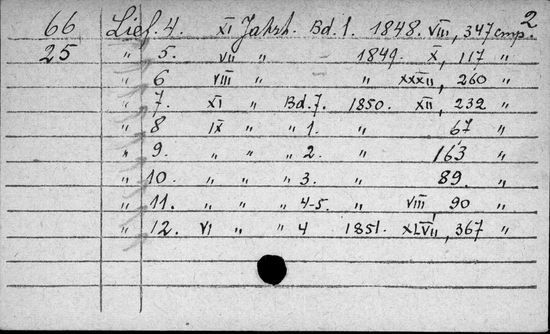 2
66 Lief. 4. XI Jahrh. Bd. 1. 1848. VIII, 347 cmp.
25 " 5. VII " " 1849. X, 117 "
" 6 VIII " " XXXII, 260 "
" 7. XI " Bd. 7. 1850. XII, 232 "
" 8 IX " " 1. 67 "
" 9. " " " 2. 163 "
" 10. " " " 3. 89. "
" 11. " " " 4-5. VIII, 90 "
" 12. VI " " 4 1851. XLVII, 367 "